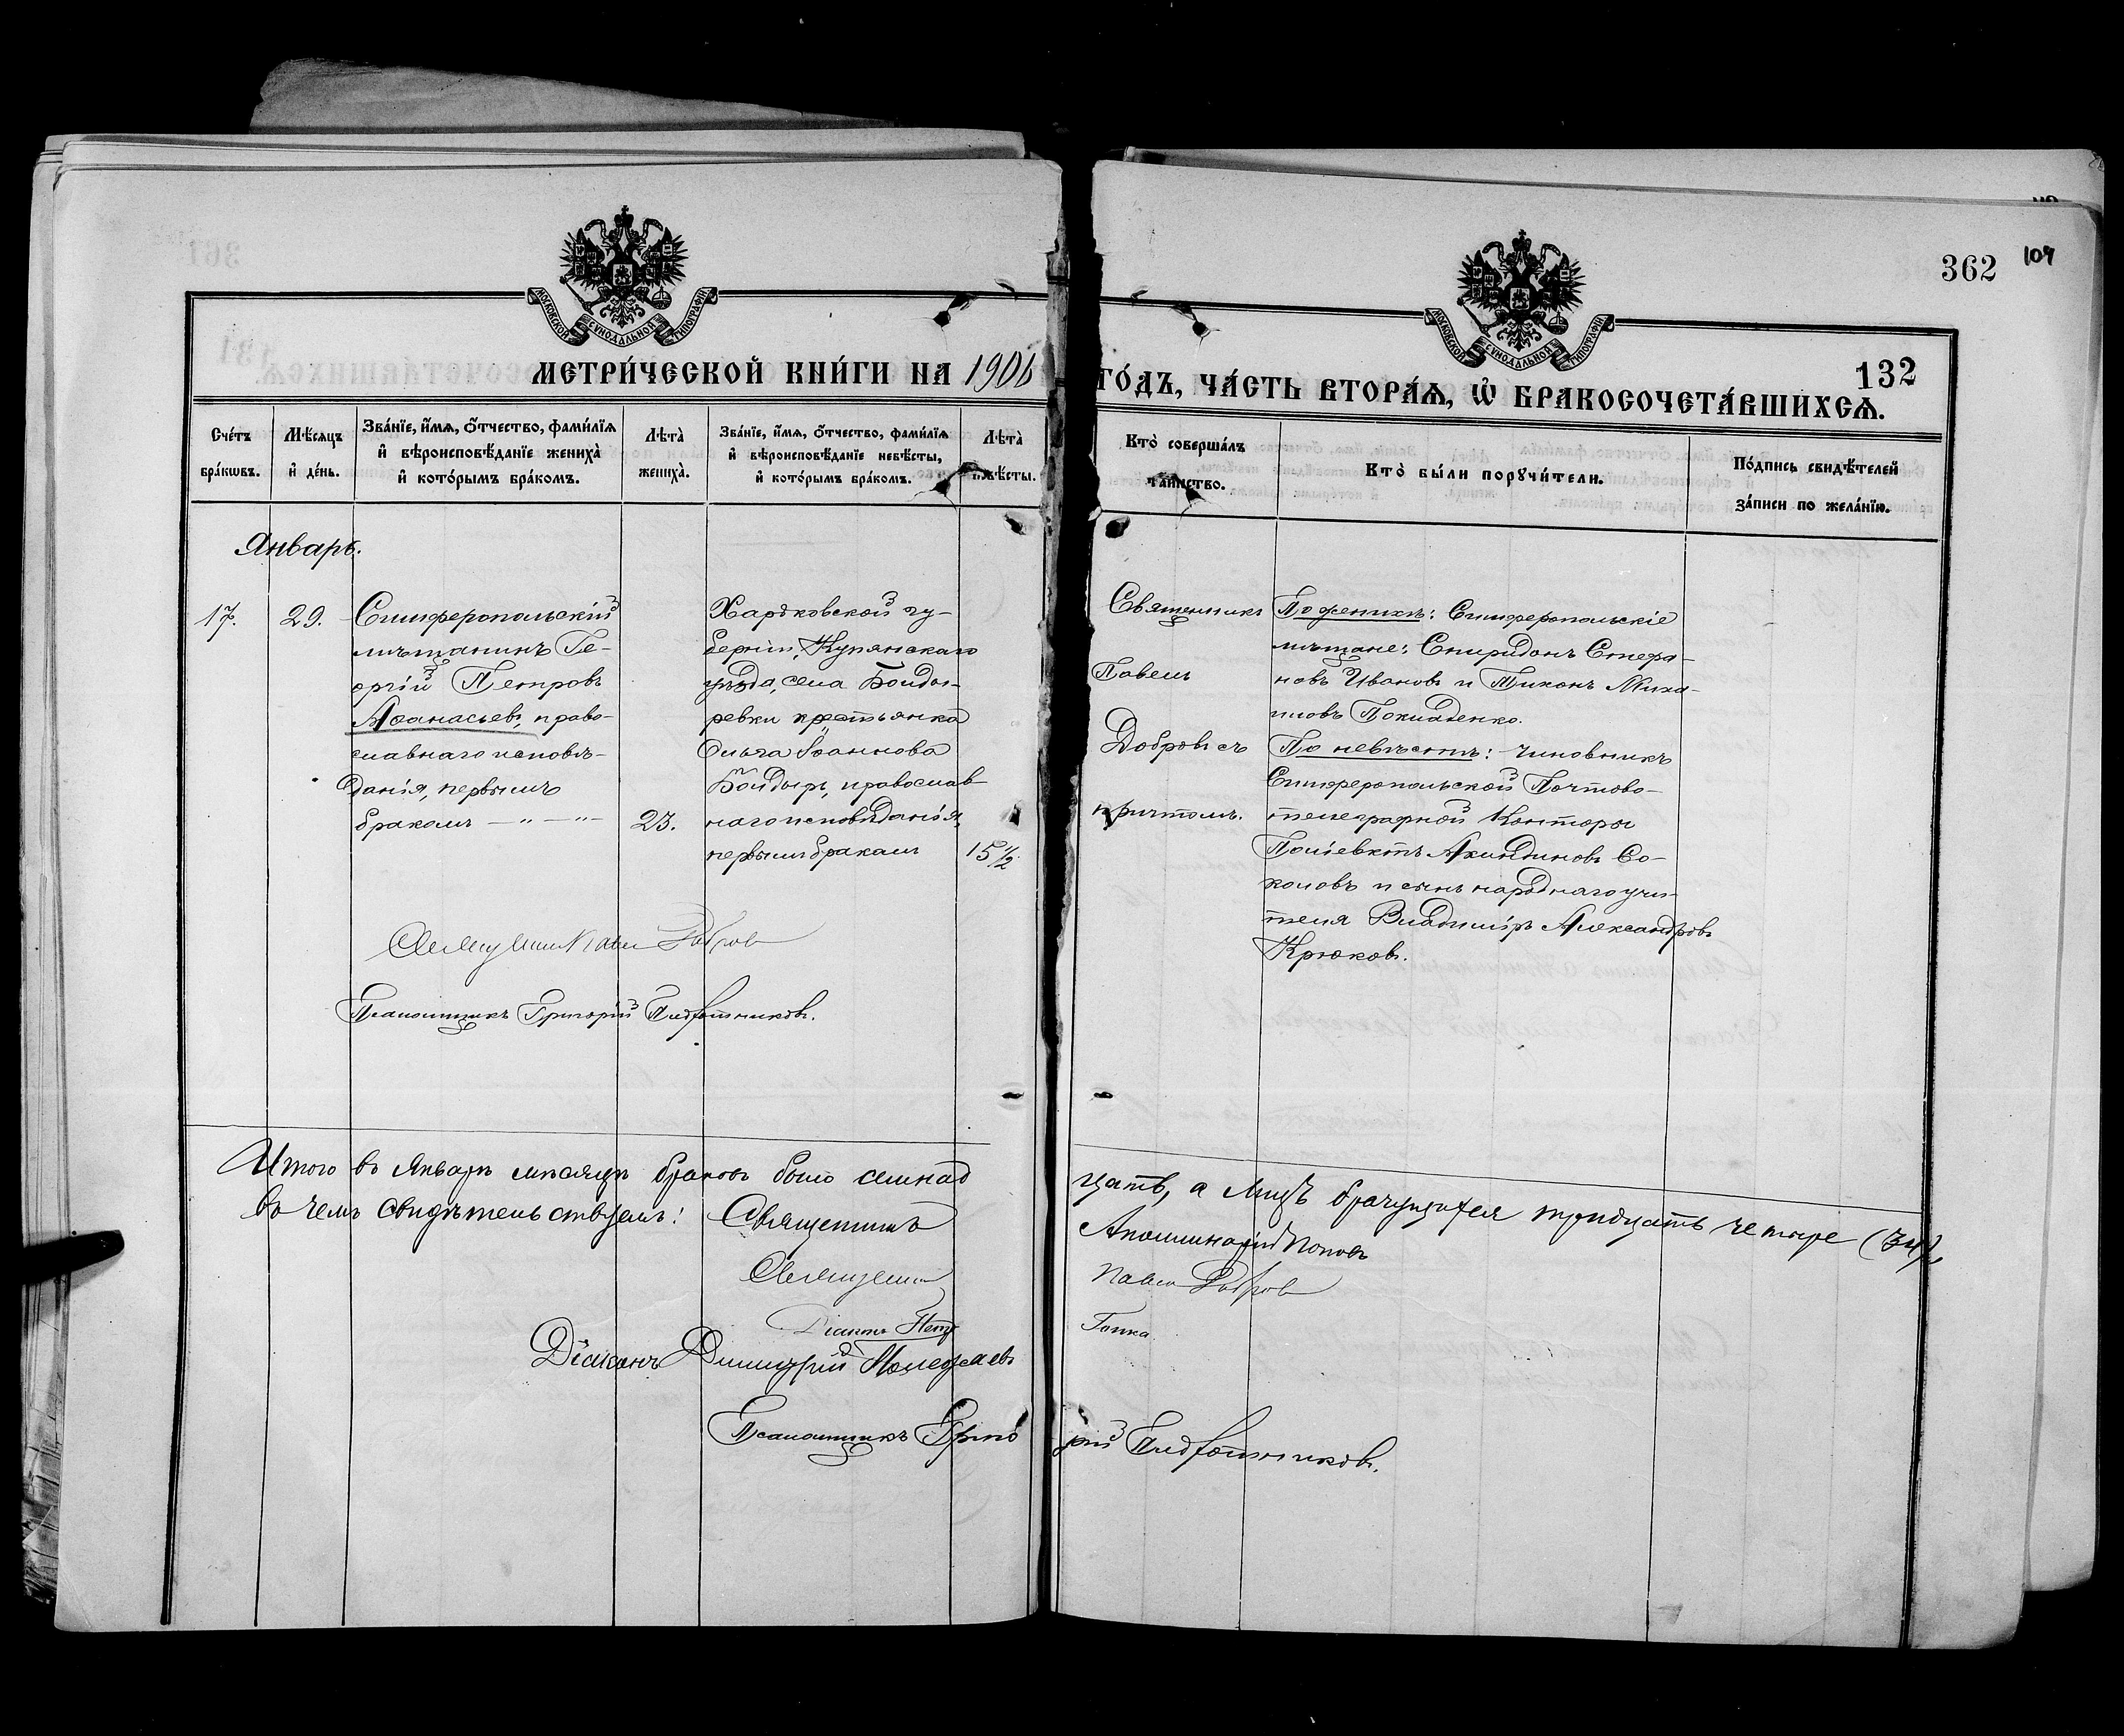 362 104
МОСКОВСКОЙ СУНОДАЛЬНОЙ ТИПОГРАФІИ
МОСКОВСКОЙ СУНОДАЛЬНОЙ ТИПОГРАФІИ
132
МЕТРИ́ЧЕСКОЙ КНИ́ГИ НА 1906 ГО́ДЪ, ЧА́СТЬ ВТОРА́Ѧ, Ѽ БРАКОСОЧЕТА́ВШИХСѦ.
Сче́тъ
бра́кѡвъ.
Мѣ́сѧцъ
и҆ де́нь.
Зва́нїе, и҆́мѧ, ѻ҆́тчество, фами́лїѧ
и҆ вѣроисповѣ́данїе жениха̀
и҆ кото́рымъ бра́комъ.
Лѣта̀
жениха̀.
Зва́нїе, и҆́мѧ, ѻ҆́тчество, фами́лїѧ
и҆ вѣроисповѣ́данїе невѣ́сты,
и҆ кото́рымъ бра́комъ.
Лѣта̀
невѣ́сты.
Кто̀ соверша́лъ
та́инство.
Кто̀ бы́ли порꙋчи́тели.
По́дпись свидѣ́телей
за́писи по жела́нїю.
Январь.
17.
29.
Симферопольскій
мѣщанинъ Ге-
оргій Петровъ
Аѳанасьевъ, право-
славнаго исповѣ-
данія, первымъ
бракомъ — „ — „ —
23.
Харьковской гу-
берніи, Купянскаго
уѣзда, села Болды-
ревки крестьянка
Ольга Іоаннова
Болдырь, православ
наго исповѣданія,
первымъ бракомъ
15 1/2.
Священникъ
Павелъ
Добровъ съ
причтомъ.
По женихѣ: Симферопольскіе
мѣщане: Спиридонъ Стефа-
новъ Ивановъ и Тихонъ Миха-
иловъ Покиденко.
По невѣстѣ: чиновникъ
Симферопольской Почтово-
телеграфной Конторы
Поліевктъ Акиндиновъ Со-
коловъ и сынъ народнаго учи-
теля Владиміръ Александровъ
Крюковъ.
Священникъ Павелъ Добровъ
Псаломщикъ Григорій Плотниковъ.
Итого въ Январѣ мѣсяцѣ браковъ было семнад
цать, а лицъ брачущихся тридцать четыре (34),
въ чемъ свидѣтельствуемъ: Священникъ Аполлинарій Поповъ
Священникъ Павелъ Добровъ
Діаконъ Петр Гопка
Діаконъ Димитрій
Псаломщикъ Григо
рій